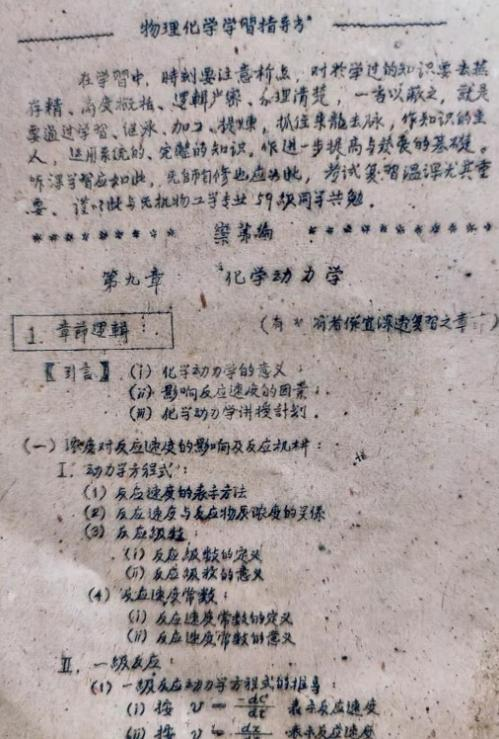 物理化学学習指导书
在学習中，時刻要注意析点，对於学过的知识要去蕪
存精、高度概括、逻輯严密、条理清楚，一言以蔽之，就是
要通过学習、继承、加工、提煉，抓住来龍去脉，作知识的主
人，运用系统的、完整的知识，作进一步提高与發展的基礎。
听课学習应如此，先師自修也应如此，考试复習温课尤其重
要。谨以此与无机物工学专业59級同学共勉。
第九章 化学动力学
(有 * 有者保宜深透复習之章节)
1. 章節逻輯：
【引言】(i) 化学动力学的意义；
(ii) 影响反应速度的因素；
(iii) 化学动力学讲授計划。
(一) 浓度对反应速度的影响及反应机构：
I. 动力学方程式：
(1) 反应速度的表示方法
(2) 反应速度与反应物质浓度的关係
(3) 反应級数：
(i) 反应級数的定义
(ii) 反应級数的意义
(4) 反应速度常数：
(i) 反应速度常数的定义
(ii) 反应速度常数的意义
II. 一級反应：
(1) 一級反应动力学方程式的推导：
(i) 按 v = -dc/dt 表示反应速度
(ii) 按 v = dx/dt 表示反应速度